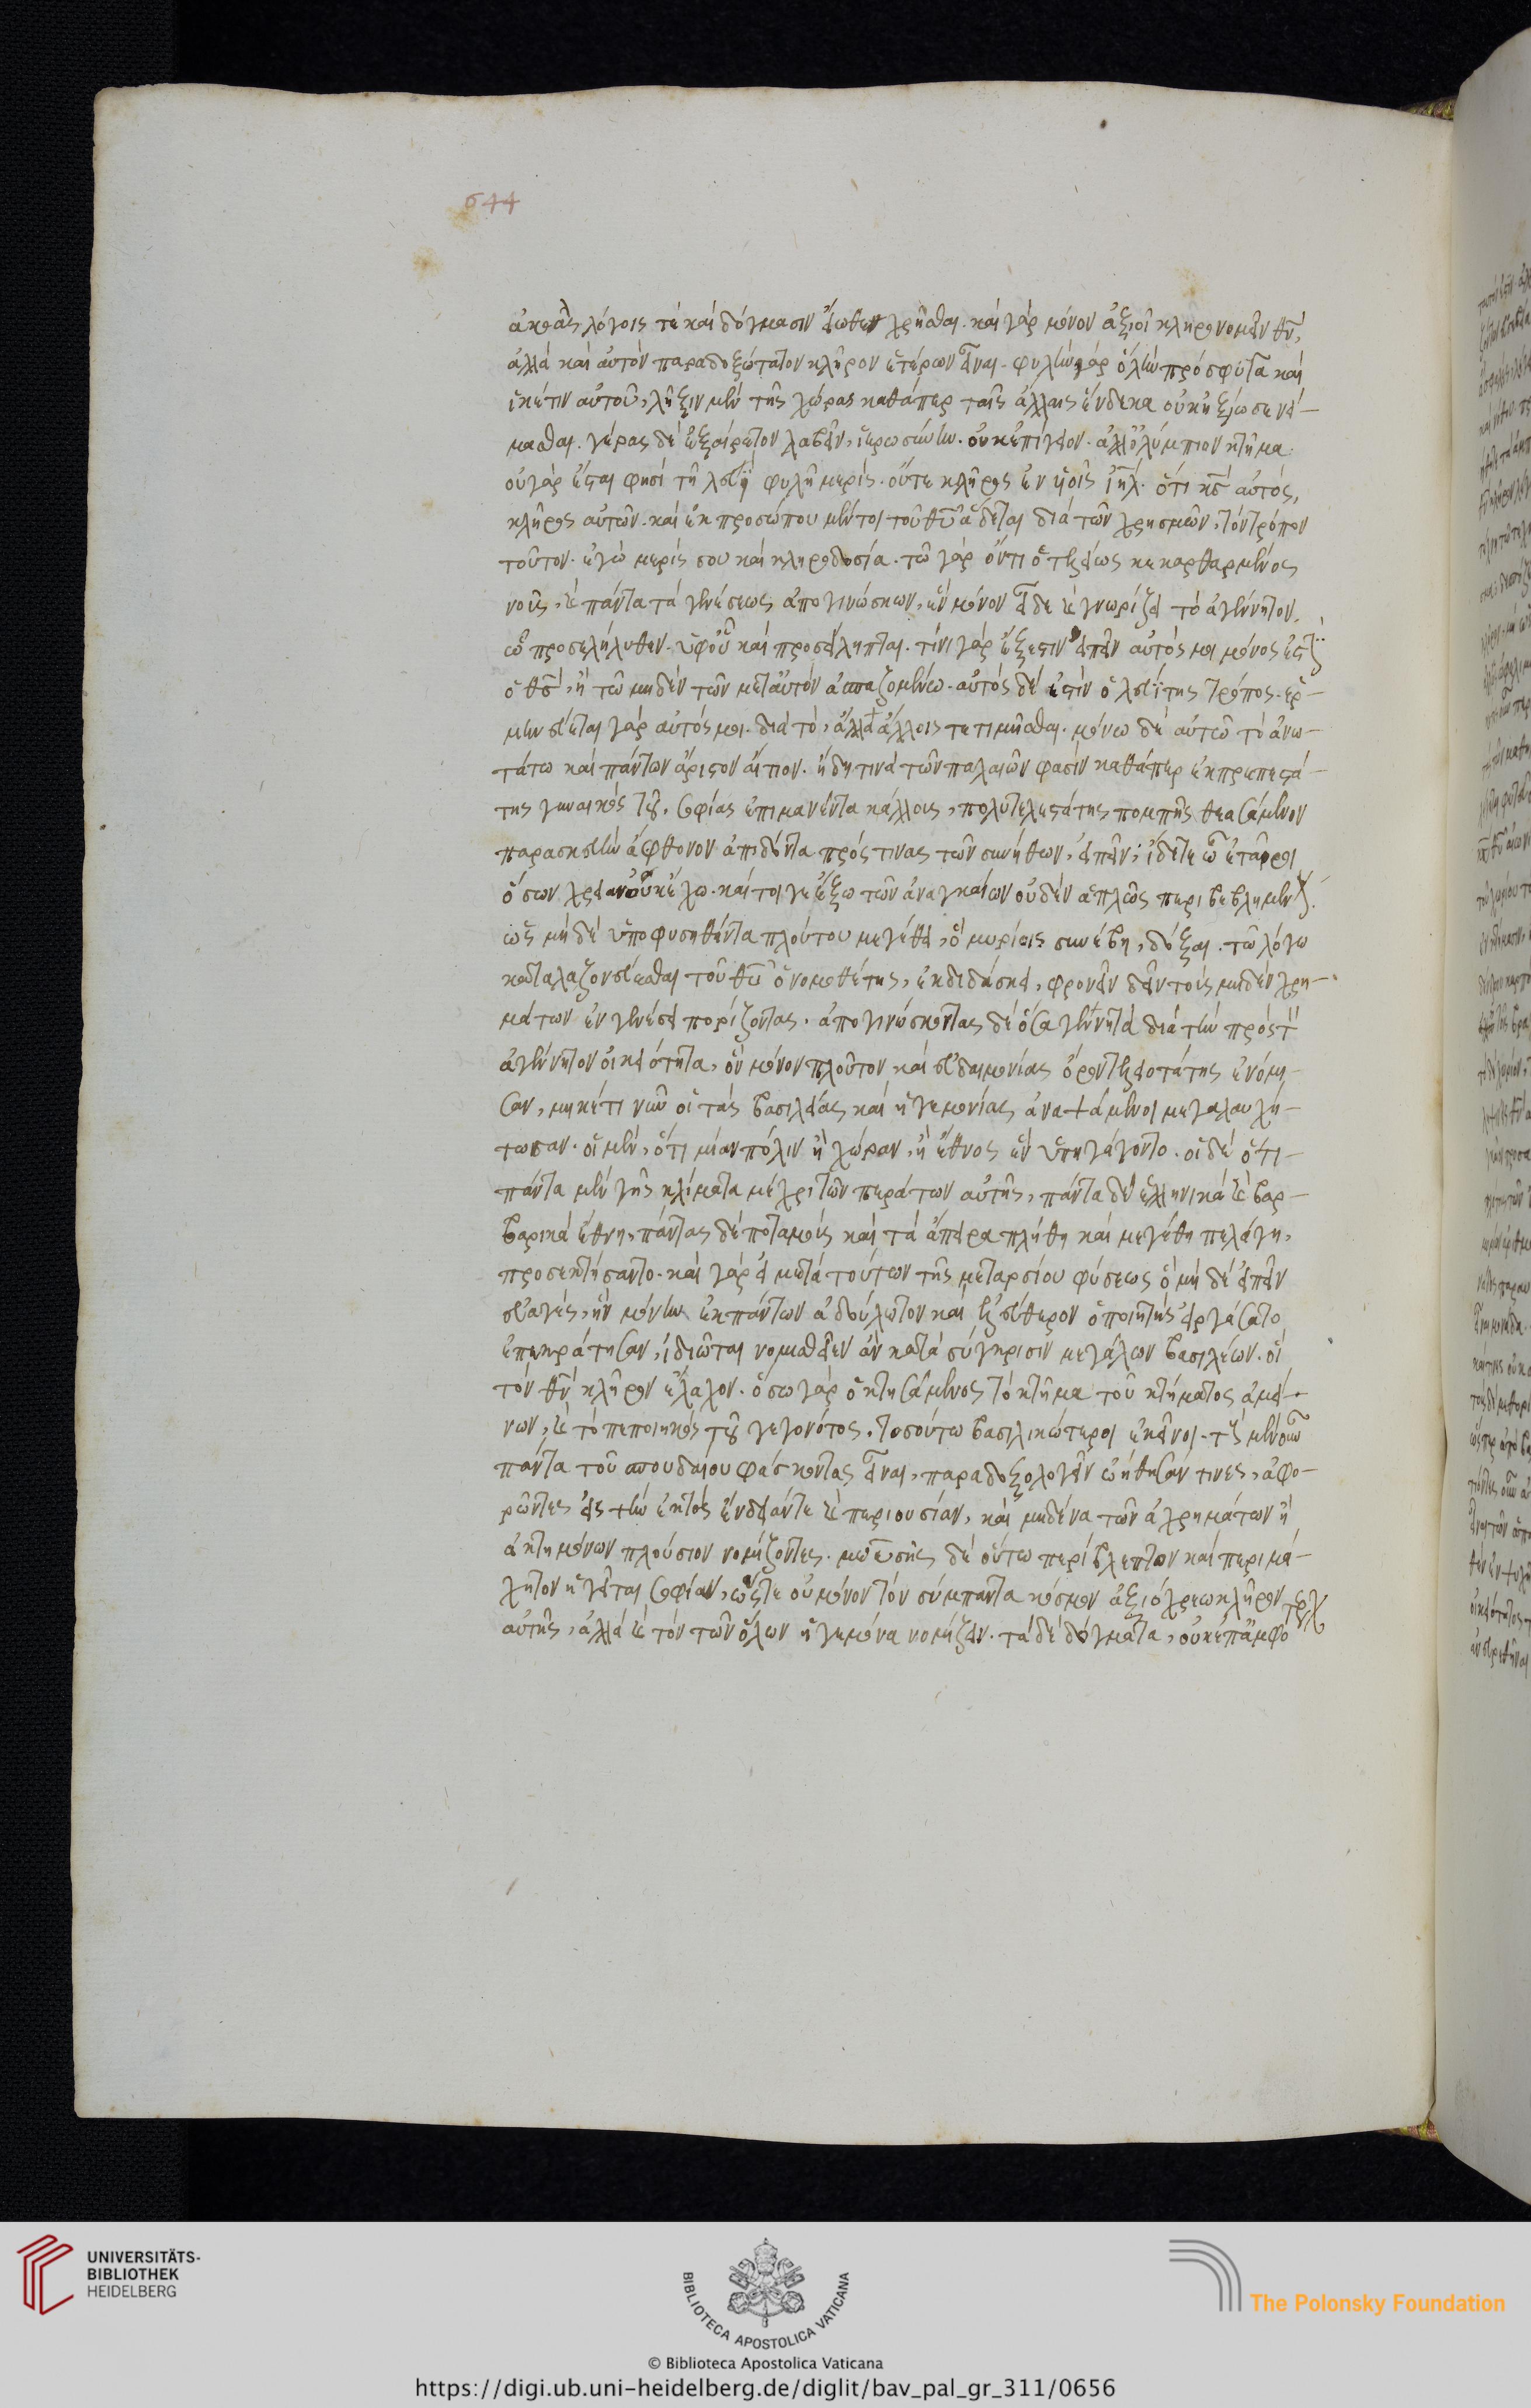 644
ἀκοαῖς λόγοις τὲ καὶ δόγμασιν εἴωθεν χρῆσθαι. καὶ γὰρ μόνον ἀξιοῖ κληρονομεῖν θν̅,
ἀλλὰ καὶ αὐτὸν παραδοξώτατον κλῆρον ἑτέρων εἶναι. φυλὴν γὰρ ὅλην πρόσφυγα καὶ
ἱκέτιν αὐτοῦ, λῆξιν μὲν τῆς χώρας καθάπερ ταῖς ἄλλαις ἕνδεκα οὐκ ἠξίωσε νεί-
μασθαι. γέρας δὲ ἐξαίρετον λαβεῖν, ἱερωσύνην. οὐκ ἐπίγειον. ἀλλ' ὀλύμπιον κτῆμα.
οὐ γὰρ ἔσται φησὶ τῆ λευῒ φυλῆ μερίς. οὔτε κλῆρος ἐν υἱοῖς ι̅η̅λ. ὅτι κς̅ αὐτός,
κλῆρος αὐτῶν. καὶ ἐκ προσώπου μέντοι τοῦ θυ̅ ἄδεται διὰ τῶν χρησμῶν, τὸν τρόπον
τοῦτον. ἐγὼ μερίς σου καὶ κληροδοσία. τῶ γὰρ ὄντι ὁ τελείως κεκαρθαρμένος
νοῦς, καὶ πάντα τὰ γενέσεως ἀπογινώσκων, ἓν μόνον εἶδε καὶ γνωρίζει τὸ ἀγέννητον.
ὧ προσελήλυθεν. ὑφ' οὗ καὶ προσείληπται. τίνι γὰρ ἔξεστιν εἰπεῖν αὐτός μοι μόνος ἐστὶν
ὁ θς̅, ἢ τῶ μηδὲν τῶν μετ' αὐτὸν ἀσπαζομένω. αὐτὸς δέ ἐστιν ὁ λευΐτης τρόπος. ἑρ-
μηνεύεται γὰρ αὐτός μοι. διὰ τὸ, ἄλλα ἄλλοις τετιμῆσθαι. μόνω δὲ αὐτῶ τὸ ἀνω-
τάτω καὶ πάντων ἄριστον αἴτιον. ἤδη τινὰ τῶν παλαιῶν φασὶν καθάπερ ἐκπρεπεστά-
της γυναικὸς τῆς σοφίας ἐπιμανέντα κάλλους, πολυτελεστάτης πομπῆς θεασάμενον
παρασκευὴν ἄφθονον ἀπιδόντα πρός τινας τῶν συνήθων, εἰπεῖν· ἴδετε ὦ ἑταῖροι
ὅσων χρείαν οὐκ ἔχω. καί τοι γε ἔξω τῶν ἀναγκαίων οὐδὲν ἁπλῶς περιβεβλημένον.
ὡς μὴ δὲ ὑποφυσηθέντα πλούτου μεγέθει, ὃ μυρίοις συνέβη, δόξαι. τῶ λόγω
καταλαζονεύεσθαι τοῦθ' ὁ νομοθέτης, ἐκδιδάσκει, φρονεῖν δεῖν τοὺς μηδὲν χρη-
μάτων ἐν γενέσει πορίζοντας. ἀπογινώσκοντας δὲ ὅσα γεννητὰ διὰ τὴν πρὸς τὸν
ἀγέννητον οἰκειότητα, ὃν μόνον πλοῦτον καὶ εὐδαιμονίας ὅρον τελειοτάτης ἐνόμι-
σαν, μηκέτι νῦν οἱ τὰς βασιλείας καὶ ἡγεμονίας ἀναψάμενοι μεγαλαυχή-
τωσαν. οἱ μὲν, ὅτι μίαν πόλιν ἢ χώραν, ἢ ἔθνος ἓν ὑπηγάγοντο. οἱ δὲ ὅτι-
πάντα μὲν γῆς κλίματα μέχρι τῶν περάτων αὐτῆς, πάντα δὲ ἑλληνικὰ καὶ βαρ-
βαρικὰ ἔθνη, πάντας δὲ ποταμοὺς καὶ τὰ ἄπειρα πλήθη καὶ μεγέθη πελάγη,
προσεκτήσαντο. καὶ γὰρ εἰ μετὰ τούτων τῆς μεταρσίου φύσεως ὃ μὴ δὲ εἰπεῖν
εὐαγές, ἣν μόνην ἐκ πάντων ἀδούλωτον καὶ ἐλεύθερον ὁ ποιητὴς εἰργάσατο
ἐπεκράτησαν, ἰδιῶται νομισθεῖεν ἂν κατὰ σύγκρισιν μεγάλων βασιλέων. οἳ
τὸν θν̅ κλῆρον ἔλαχον. ὅσω γὰρ ὁ κτησάμενος τὸ κτῆμα τοῦ κτήματος ἀμεί-
νων, καὶ τὸ πεποιηκὸς τοῦ γεγονότος, τοσούτω βασιλικώτεροι ἐκεῖνοι. τοὺς μὲν οὖν
πάντα τοῦ σπουδαίου φάσκοντας εἶναι, παραδοξολογεῖν ὠήθησάν τινες, ἀφο-
ρῶντες εἰς τὴν ἐκτὸς ἔνδειάν τε καὶ περιουσίαν, καὶ μηδένα τῶν ἀχρημάτων ἢ
ἀκτημόνων πλούσιον νομίζοντες. μωϋσῆς δὲ οὕτω περίβλεπτον καὶ περιμά-
χητον ἡγεῖται σοφίαν, ὥστε οὐ μόνον τὸν σύμπαντα κόσμον ἀξιόχρεω κλῆρον
αὐτῆς, ἀλλὰ καὶ τὸν τῶν ὅλων ἡγεμόνα νομίζειν. τὰ δὲ δόγματα, οὐκ ἐπαμφο
UNIVERSITÄTS-
BIBLIOTHEK
HEIDELBERG
BIBLIOTECA APOSTOLICA VATICANA
The Polonsky Foundation
© Biblioteca Apostolica Vaticana
https://digi.ub.uni-heidelberg.de/diglit/bav_pal_gr_311/0656